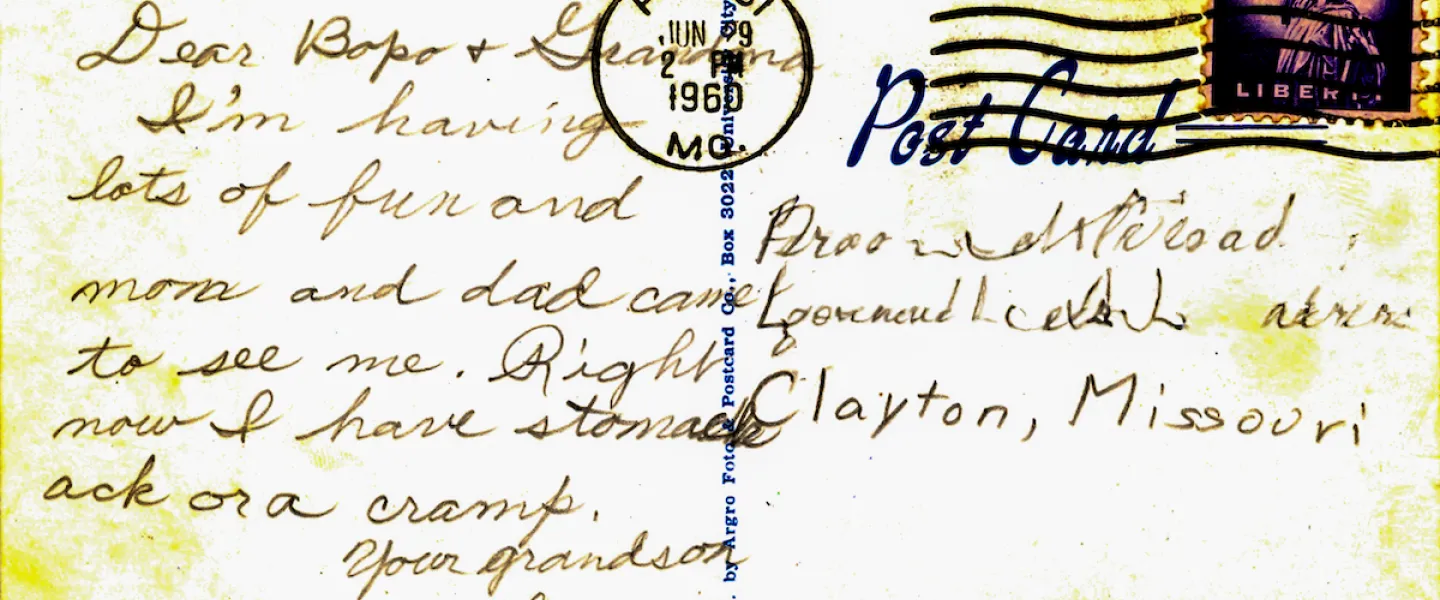 Dear Bopo + Grandma
I'm having
lots of fun and
mom and dad came
to see me. Right
now I have stomack
ack or a cramp.
Your grandson
JUN 29
2 PM
1960
MO.
LIBERTY
Post Card
Clayton, Missouri
. by Argro Foto & Postcard Co., Box 3022 University City